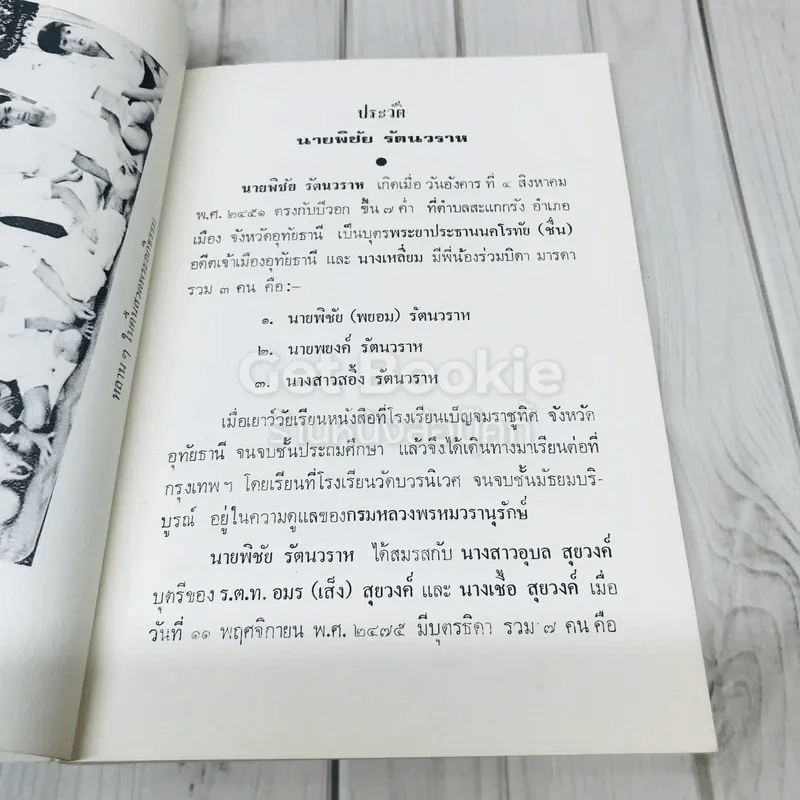 ประวัติ
นายพิชัย รัตนวราห
นายพิชัย รัตนวราห เกิดเมื่อ วันอังคาร ที่ ๔ สิงหาคม
พ.ศ. ๒๔๕๑ ตรงกับปีวอก ขึ้น ๗ ค่ำ ที่ตำบลสะแกกรัง อำเภอ
เมือง จังหวัดอุทัยธานี เป็นบุตรพระยาประธานนคโรทัย (ชื่น)
อดีตเจ้าเมืองอุทัยธานี และ นางเหลี่ยม มีพี่น้องร่วมบิดา มารดา
รวม ๓ คน คือ :–
๑. นายพิชัย (พยอม) รัตนวราห
๒. นายพยงค์ รัตนวราห
๓. นางสาวสอิ้ง รัตนวราห
Get Bookie
เมื่อเยาว์วัยเรียนหนังสือที่โรงเรียนเบ็ญจมราชูทิศ จังหวัด
อุทัยธานี จนจบชั้นประถมศึกษา แล้วจึงได้เดินทางมาเรียนต่อที่
กรุงเทพฯ โดยเรียนที่โรงเรียนวัดบวรนิเวศ จนจบชั้นมัธยมบริ-
บูรณ์ อยู่ในความดูแลของกรมหลวงพรหมวรานุรักษ์
นายพิชัย รัตนวราห ได้สมรสกับ นางสาวอุบล สุยวงค์
บุตรีของ ร.ต.ท. อมร (เส็ง) สุยวงค์ และ นางเชื้อ สุยวงค์ เมื่อ
วันที่ ๑๑ พฤศจิกายน พ.ศ. ๒๔๗๕ มีบุตรธิดา รวม ๗ คน คือ